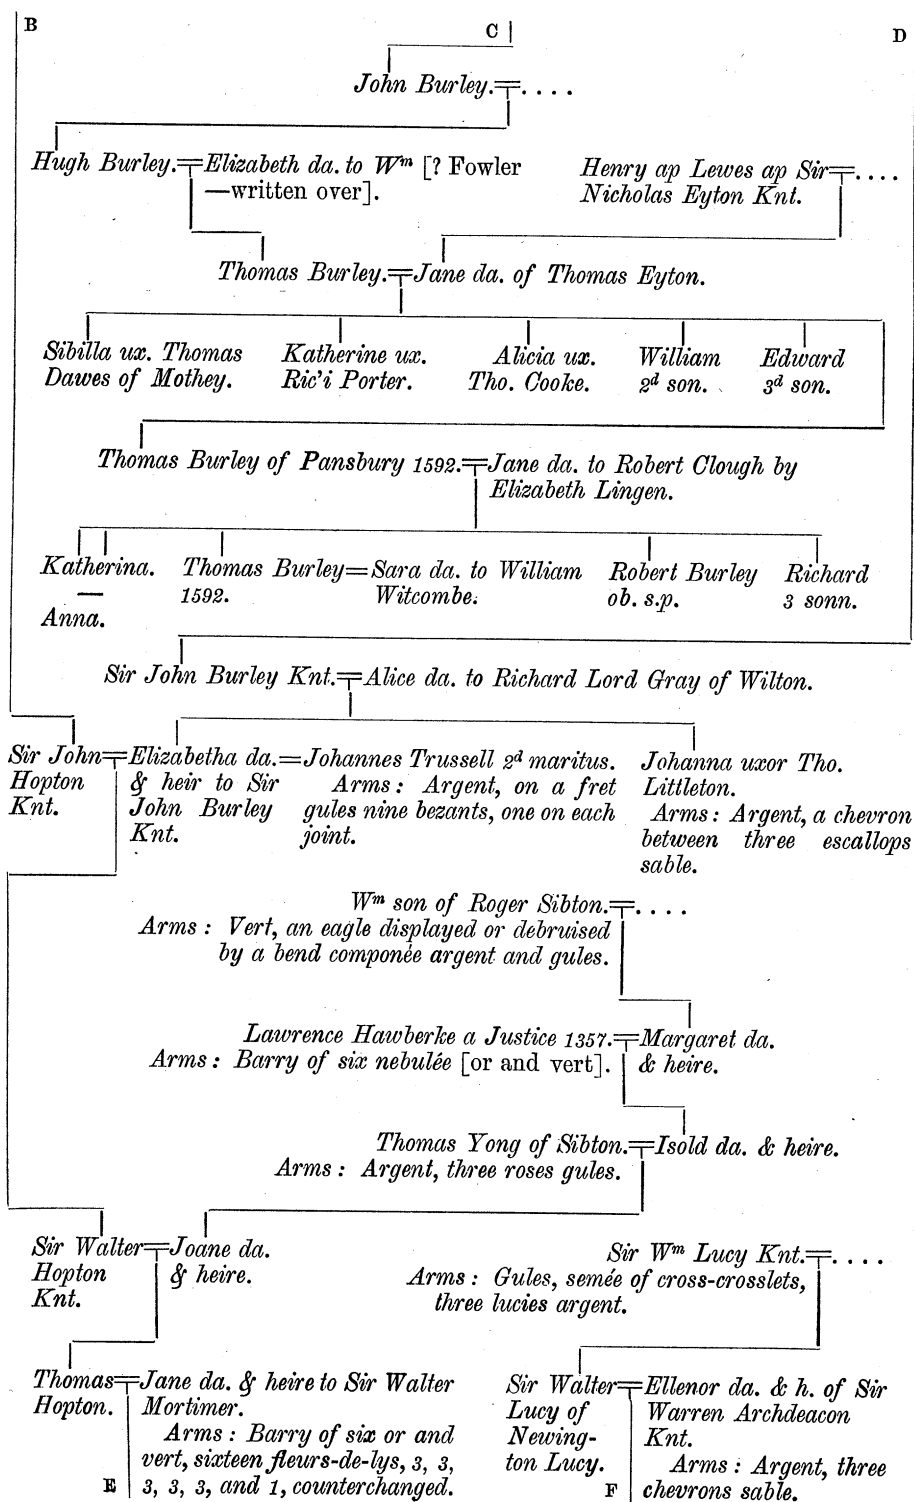 B
C
D
John Burley.=. . . .
Hugh Burley.=Elizabeth da. to Wm [? Fowler
—written over].
Henry ap Lewes ap Sir=. . . .
Nicholas Eyton Knt.
Thomas Burley.=Jane da. of Thomas Eyton.
Sibilla ux. Thomas
Dawes of Mothey.
Katherine ux.
Ric'i Porter.
Alicia ux.
Tho. Cooke.
William
2d son.
Edward
3d son.
Thomas Burley of Pansbury 1592.=Jane da. to Robert Clough by
Elizabeth Lingen.
Katherina.
—
Anna.
Thomas Burley=Sara da. to William
1592. Witcombe.
Robert Burley
ob. s.p.
Richard
3 sonn.
Sir John Burley Knt.=Alice da. to Richard Lord Gray of Wilton.
Sir John=
Hopton
Knt.
Elizabetha da.=
& heir to Sir
John Burley
Knt.
Johannes Trussell 2d maritus.
Arms: Argent, on a fret
gules nine bezants, one on each
joint.
Johanna uxor Tho.
Littleton.
Arms: Argent, a chevron
between three escallops
sable.
Wm son of Roger Sibton.=. . . .
Arms: Vert, an eagle displayed or debruised
by a bend componée argent and gules.
Lawrence Hawberke a Justice 1357.=Margaret da.
Arms: Barry of six nebulée [or and vert]. & heire.
Thomas Yong of Sibton.=Isold da. & heire.
Arms: Argent, three roses gules.
Sir Walter=Joane da.
Hopton & heire.
Knt.
Sir Wm Lucy Knt.=. . . .
Arms: Gules, semée of cross-crosslets,
three lucies argent.
Thomas=
Hopton.
Jane da. & heire to Sir Walter
Mortimer.
Arms: Barry of six or and
vert, sixteen fleurs-de-lys, 3, 3,
3, 3, 3, and 1, counterchanged.
E
Sir Walter=
Lucy of
Newing-
ton Lucy.
Ellenor da. & h. of Sir
Warren Archdeacon
Knt.
Arms: Argent, three
chevrons sable.
F